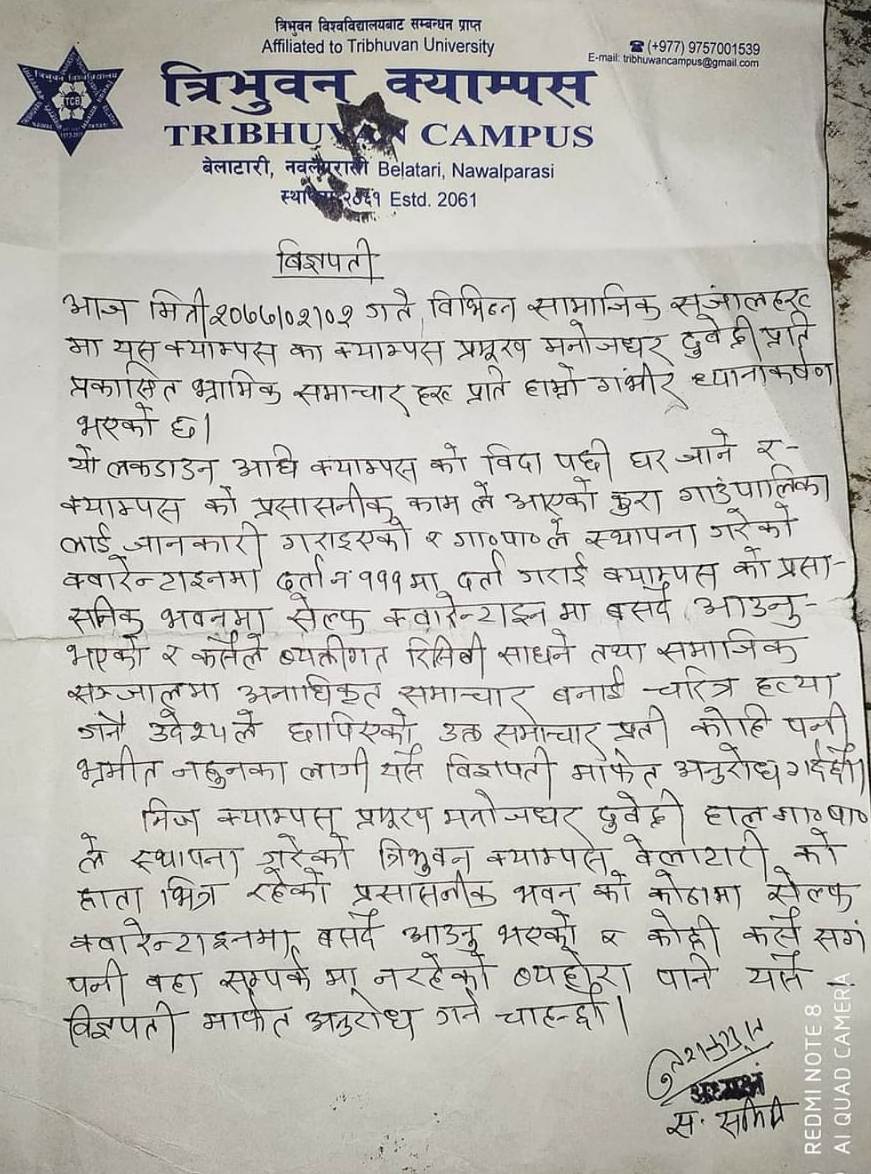 त्रिभुवन विश्वविद्यालयबाट सम्बन्धन प्राप्त
Affiliated to Tribhuvan University
☎ (+977) 9757001539
E-mail: tribhuwancampus@gmail.com
त्रिभुवन क्याम्पस
TRIBHUVAN CAMPUS
बेलाटारी, नवलपरासी Belatari, Nawalparasi
स्थापना २०६१ Estd. 2061
TCB
बिज्ञपती
आज मिती २०७७।०२।०२ गते विभिन्न सामाजिक सञ्जालहरु
मा यस क्याम्पस का क्याम्पस प्रमूख मनोजधर दुवेदी प्रति
प्रकासित भ्रामिक समाचार हरु प्रति हाम्रो गंभीर ध्यानाकर्षण
भएको छ।
यो लकडाउन अघि क्याम्पस को विदा पछी घर जाने र -
क्याम्पस को प्रसासनीक काम ले आएको कुरा गाउंपालिका
लाई जानकारी गराइएको र गा०पा० ले स्थापना गरेको
क्वारेन्टाइनमा दर्ता न १११ मा दर्ता गराई क्याम्पस को प्रसा-
सनिक भवनमा सेल्फ क्वारेन्टाइन मा बसर्दै आउनु-
भएको र कसैले ब्यक्तीगत रिसिबी साधने तथा समाजिक
सञ्जालमा अनाधिकृत समाचार बनाई चरित्र हत्या
गर्नै उदेश्य ले छापिएको उक्त समाचार प्रती कोहि पनी
भ्रमीत नहुनका लागी यसै विज्ञपती मार्फत अनुरोध गर्दछौं।
निज क्याम्पस प्रमूख मनोजधर दुवेदी हाल गा०पा०
ले स्थापना गरेको त्रिभुवन क्याम्पस वेलाटारी को
हाता भित्र रहेको प्रसासनीक भवन को कोठामा सेल्फ
क्वारेन्टाइनमा बसर्दै आउनु भएको र कोही कसै सगं
पनी वहा सम्पर्क मा नरहेको ब्यहोरा पनि यसै -
विज्ञपती मार्फत अनुरोध गर्न चाहन्छौं।
अध्यक्ष
स. समिति
REDMI NOTE 8
AI QUAD CAMERA